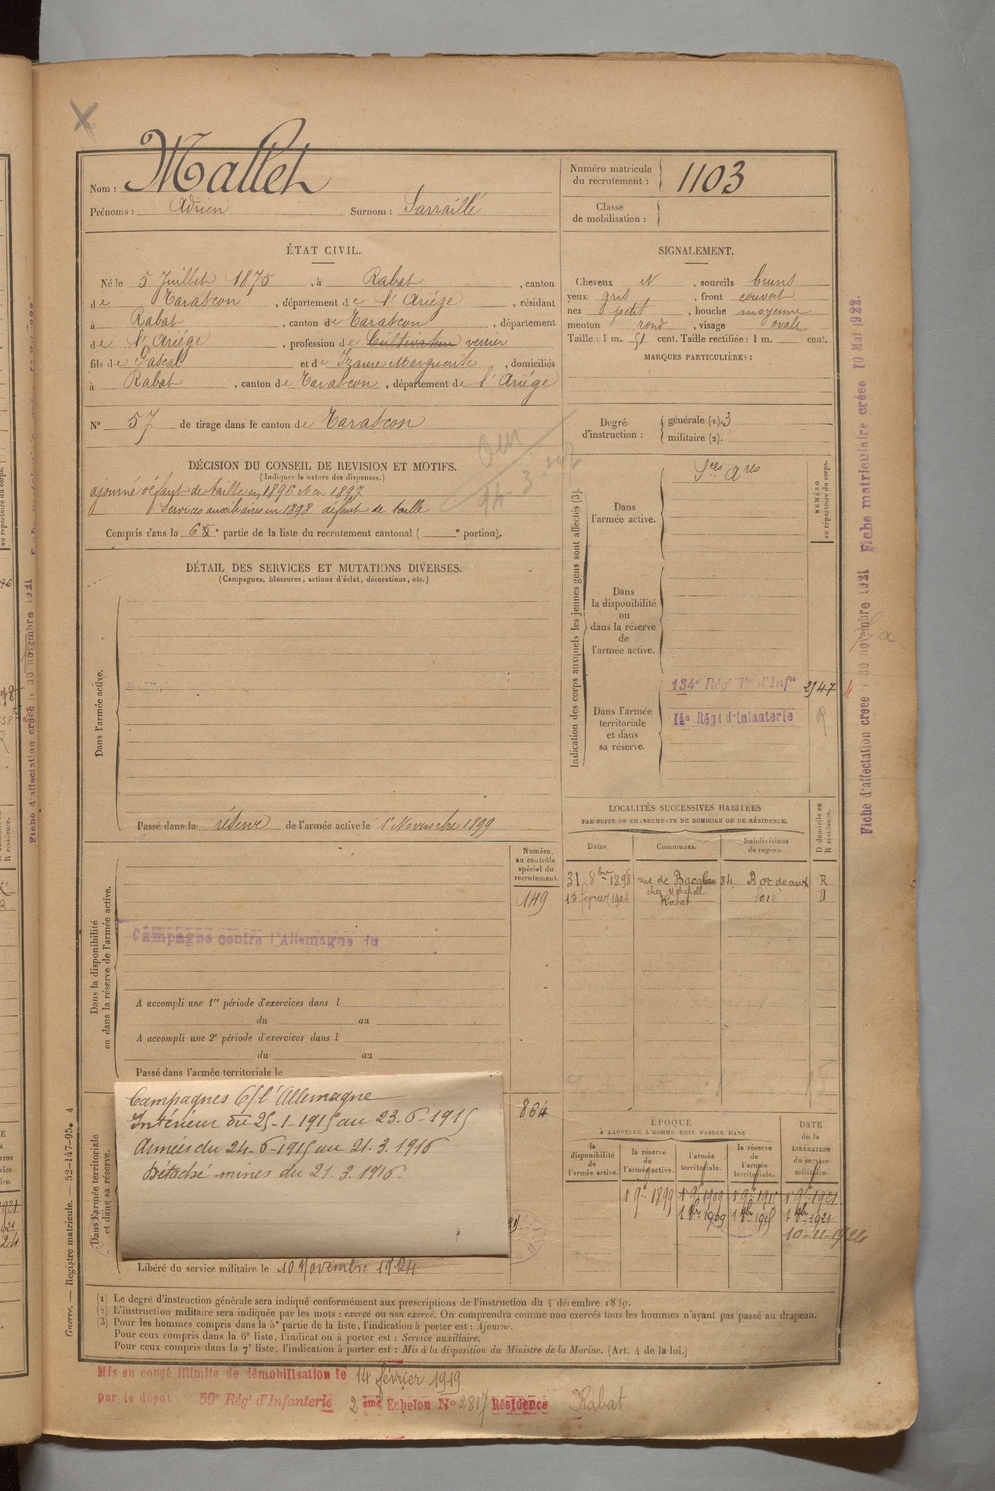 Nom : Mallet
Prénoms : Adrien Surnom : Sarraillé
Numéro matricule du recrutement : 1103
Classe de mobilisation :
ÉTAT CIVIL.
Né le 5 Juillet 1875, à Rabat, canton
de Tarascon, département de l'Ariége, résidant
à Rabat, canton de Tarascon, département
de l'Ariége, profession de Cultivateur verrier
fils de Pascal et de Izaure Marguerite, domiciliés
à Rabat, canton de Tarascon, département de l'Ariége
N° 57 de tirage dans le canton de Tarascon
SIGNALEMENT.
Cheveux N, sourcils bruns
yeux gris, front couvert
nez petit, bouche moyenne
menton rond, visage ovale
Taille : 1 m. 51 cent. Taille rectifiée : 1 m. cent.
MARQUES PARTICULIÈRES :
Degré d'instruction : générale (1). 3
militaire (2).
DÉCISION DU CONSEIL DE REVISION ET MOTIFS.
(Indiquer la nature des dispenses.)
ajourné défaut de taille en 1896 et en 1897
Services auxiliaires en 1898 défaut de taille
Compris dans la 6e partie de la liste du recrutement cantonal ( e portion).
DÉTAIL DES SERVICES ET MUTATIONS DIVERSES.
(Campagnes, blessures, actions d'éclat, décorations, etc.)
Dans l'armée active.
Passé dans la réserve de l'armée active le 1 Novembre 1899
Indication des corps auxquels les jeunes gens sont affectés (3).
NUMÉRO au répertoire du corps.
Sces Ares
Dans l'armée active.
Dans la disponibilité ou dans la réserve de l'armée active.
Dans l'armée territoriale et dans sa réserve.
134e Régt Tal d'Infie 2547
14e Régt d'Infanterie R
LOCALITÉS SUCCESSIVES HABITÉES
PAR SUITE DE CHANGEMENTS DE DOMICILE OU DE RÉSIDENCE.
Dates. Communes. Subdivisions de région. D domicile ou R résidence.
31 8bre 1898 rue de Bacalan 84 Bordeaux R
13 février 1902 Rabat Foix D
Dans la disponibilité ou dans la réserve de l'armée active.
Numéro au contrôle spécial du recrutement.
149
Campagne contre l'Allemagne du
A accompli une 1re période d'exercices dans l
du au
A accompli une 2e période d'exercices dans l
du au
Passé dans l'armée territoriale le
Dans l'armée territoriale et dans sa réserve.
864
Campagnes C/ l'Allemagne
Intérieur du 25-1-1915 au 23-6-1915
Armées du 24-6-1915 au 21.3.1916
Détaché mines du 21.3.1916.
Libéré du service militaire le 10 Novembre 1924
ÉPOQUE
À LAQUELLE L'HOMME DOIT PASSER DANS
DATE de la LIBÉRATION du service militaire.
la disponibilité de l'armée active. la réserve de l'armée active. l'armée territoriale. la réserve de l'armée territoriale.
1 9re 1899 1 9re 1909 1 9re 1915 1 9re 1921
1 8bre 1909 1 8bre 1915 1 8bre 1921
10-11-1924
(1) Le degré d'instruction générale sera indiqué conformément aux prescriptions de l'instruction du 4 décembre 1889.
(2) L'instruction militaire sera indiquée par les mots : exercé ou non exercé. On comprendra comme non exercés tous les hommes n'ayant pas passé au drapeau.
(3) Pour les hommes compris dans la 5e partie de la liste, l'indication à porter est : Ajourné.
Pour ceux compris dans la 6e liste, l'indication à porter est : Service auxiliaire.
Pour ceux compris dans la 7e liste, l'indication à porter est : Mis à la disposition du Ministre de la Marine. (Art. 4 de la loi.)
Mis en congé illimité de démobilisation le 14 février 1919
par le dépôt 59e Régt d'Infanterie 2 ème Echelon N° 2817 Résidence Rabat
Guerre. — Registre matricule. — 52-147-95. 4
Fiche d'affectation créée le 30 novembre 1921 Fiche matriculaire créée 10 Mai 1922.